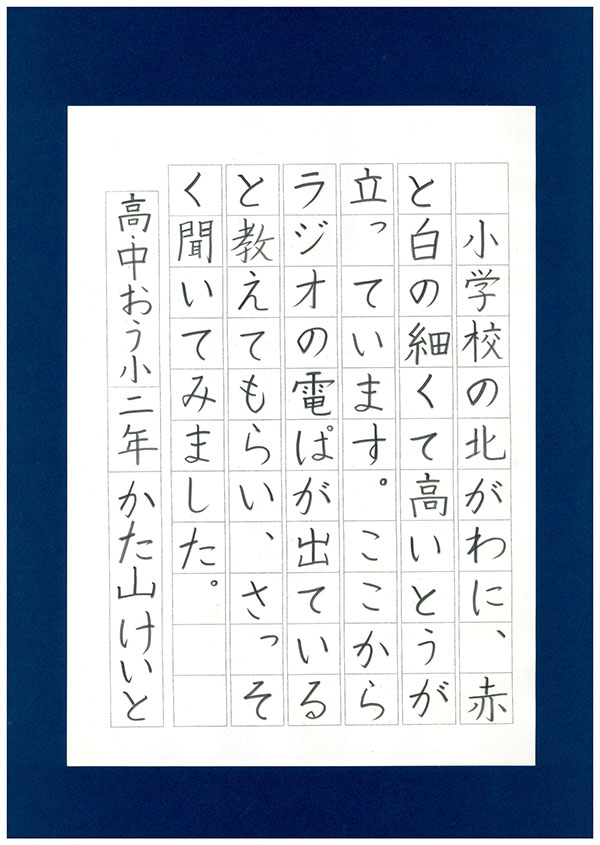 小学校の北がわに、赤
と白の細くて高いとうが
立っています。ここから
ラジオの電ぱが出ている
と教えてもらい、さっそ
く聞いてみました。
高・中おう小二年 かた山けいと